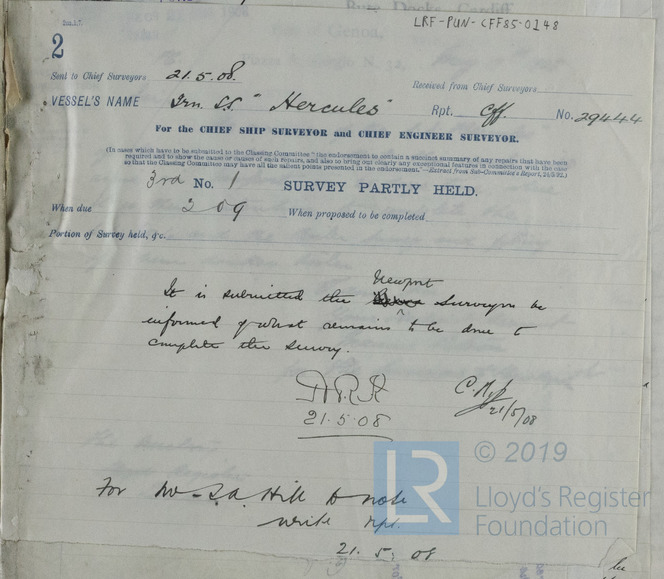 LRF-PUN-CFF85-0148
2
Sent to Chief Surveyors 21.5.08.
Received from Chief Surveyors
VESSEL'S NAME Irn. SS. "Hercules"
Rpt. Cff. No. 29444
For the CHIEF SHIP SURVEYOR and CHIEF ENGINEER SURVEYOR.
(In cases which have to be submitted to the Classing Committee "the endorsement to contain a succinct summary of any repairs that have been
required and to show the cause or causes of such repairs, and also to bring out clearly any exceptional features in connection with the case
so that the Classing Committee may have all the salient points presented in the endorsement."—Extract from Sub-Committee's Report,
3rd No. 1 SURVEY PARTLY HELD.
When due 2 09 When proposed to be completed
Portion of Survey held, &c.
Newport
It is submitted the Surveyors be
informed of what remains to be done to
complete the survey.
21.5.08
21/5/08
For Mr. S.A. Hill to note
write rpt.
21.5.08
LR
© 2019
Lloyd's Register
Foundation